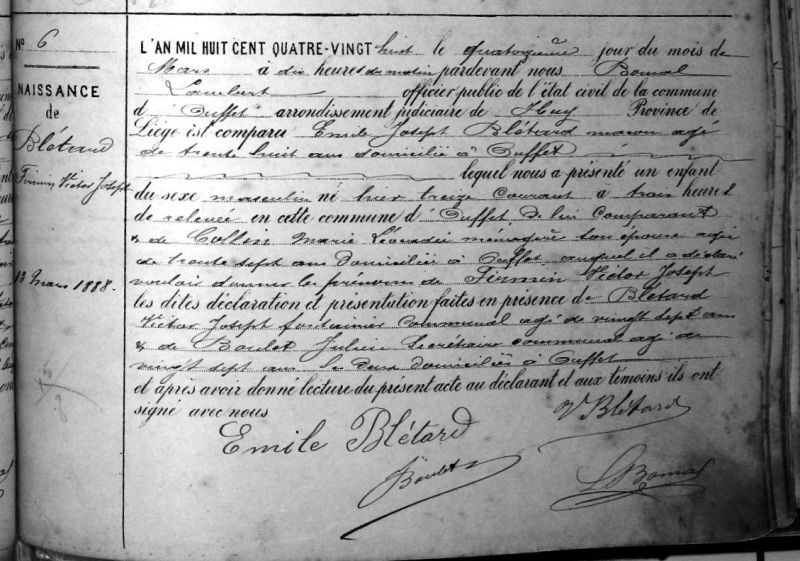 N° 6
NAISSANCE
de
Blétard
Firmin Victor Joseph
13 mars 1888.
L'AN MIL HUIT CENT QUATRE-VINGT huit le quatorzième jour du mois de
Mars à dix heures du matin pardevant nous Bonnal
Lambert officier public de l'état civil de la commune
d' Ouffet arrondissement judiciaire de Huy Province de
Liège est comparu Emile Joseph Blétard maçon agé
de trente huit ans domicilié à Ouffet
lequel nous a présenté un enfant
du sexe masculin né hier treize courant à trois heures
de relevée en cette commune d' Ouffet, de lui comparant
& de Collin Marie Léocadie ménagère son épouse agée
de trente sept ans domiciliée à Ouffet auquel il a déclaré
vouloir donner les prénoms de Firmin Victor Joseph
les dites déclaration et présentation faites en présence de Blétard
Victor Joseph fontainier communal agé de vingt sept ans
& de Boulet Julien Secrétaire communal agé de
vingt sept ans les deux domiciliés à Ouffet
et après avoir donné lecture du présent acte au déclarant et aux témoins ils ont
signé avec nous
Emile Blétard
V Blétard
Boulet